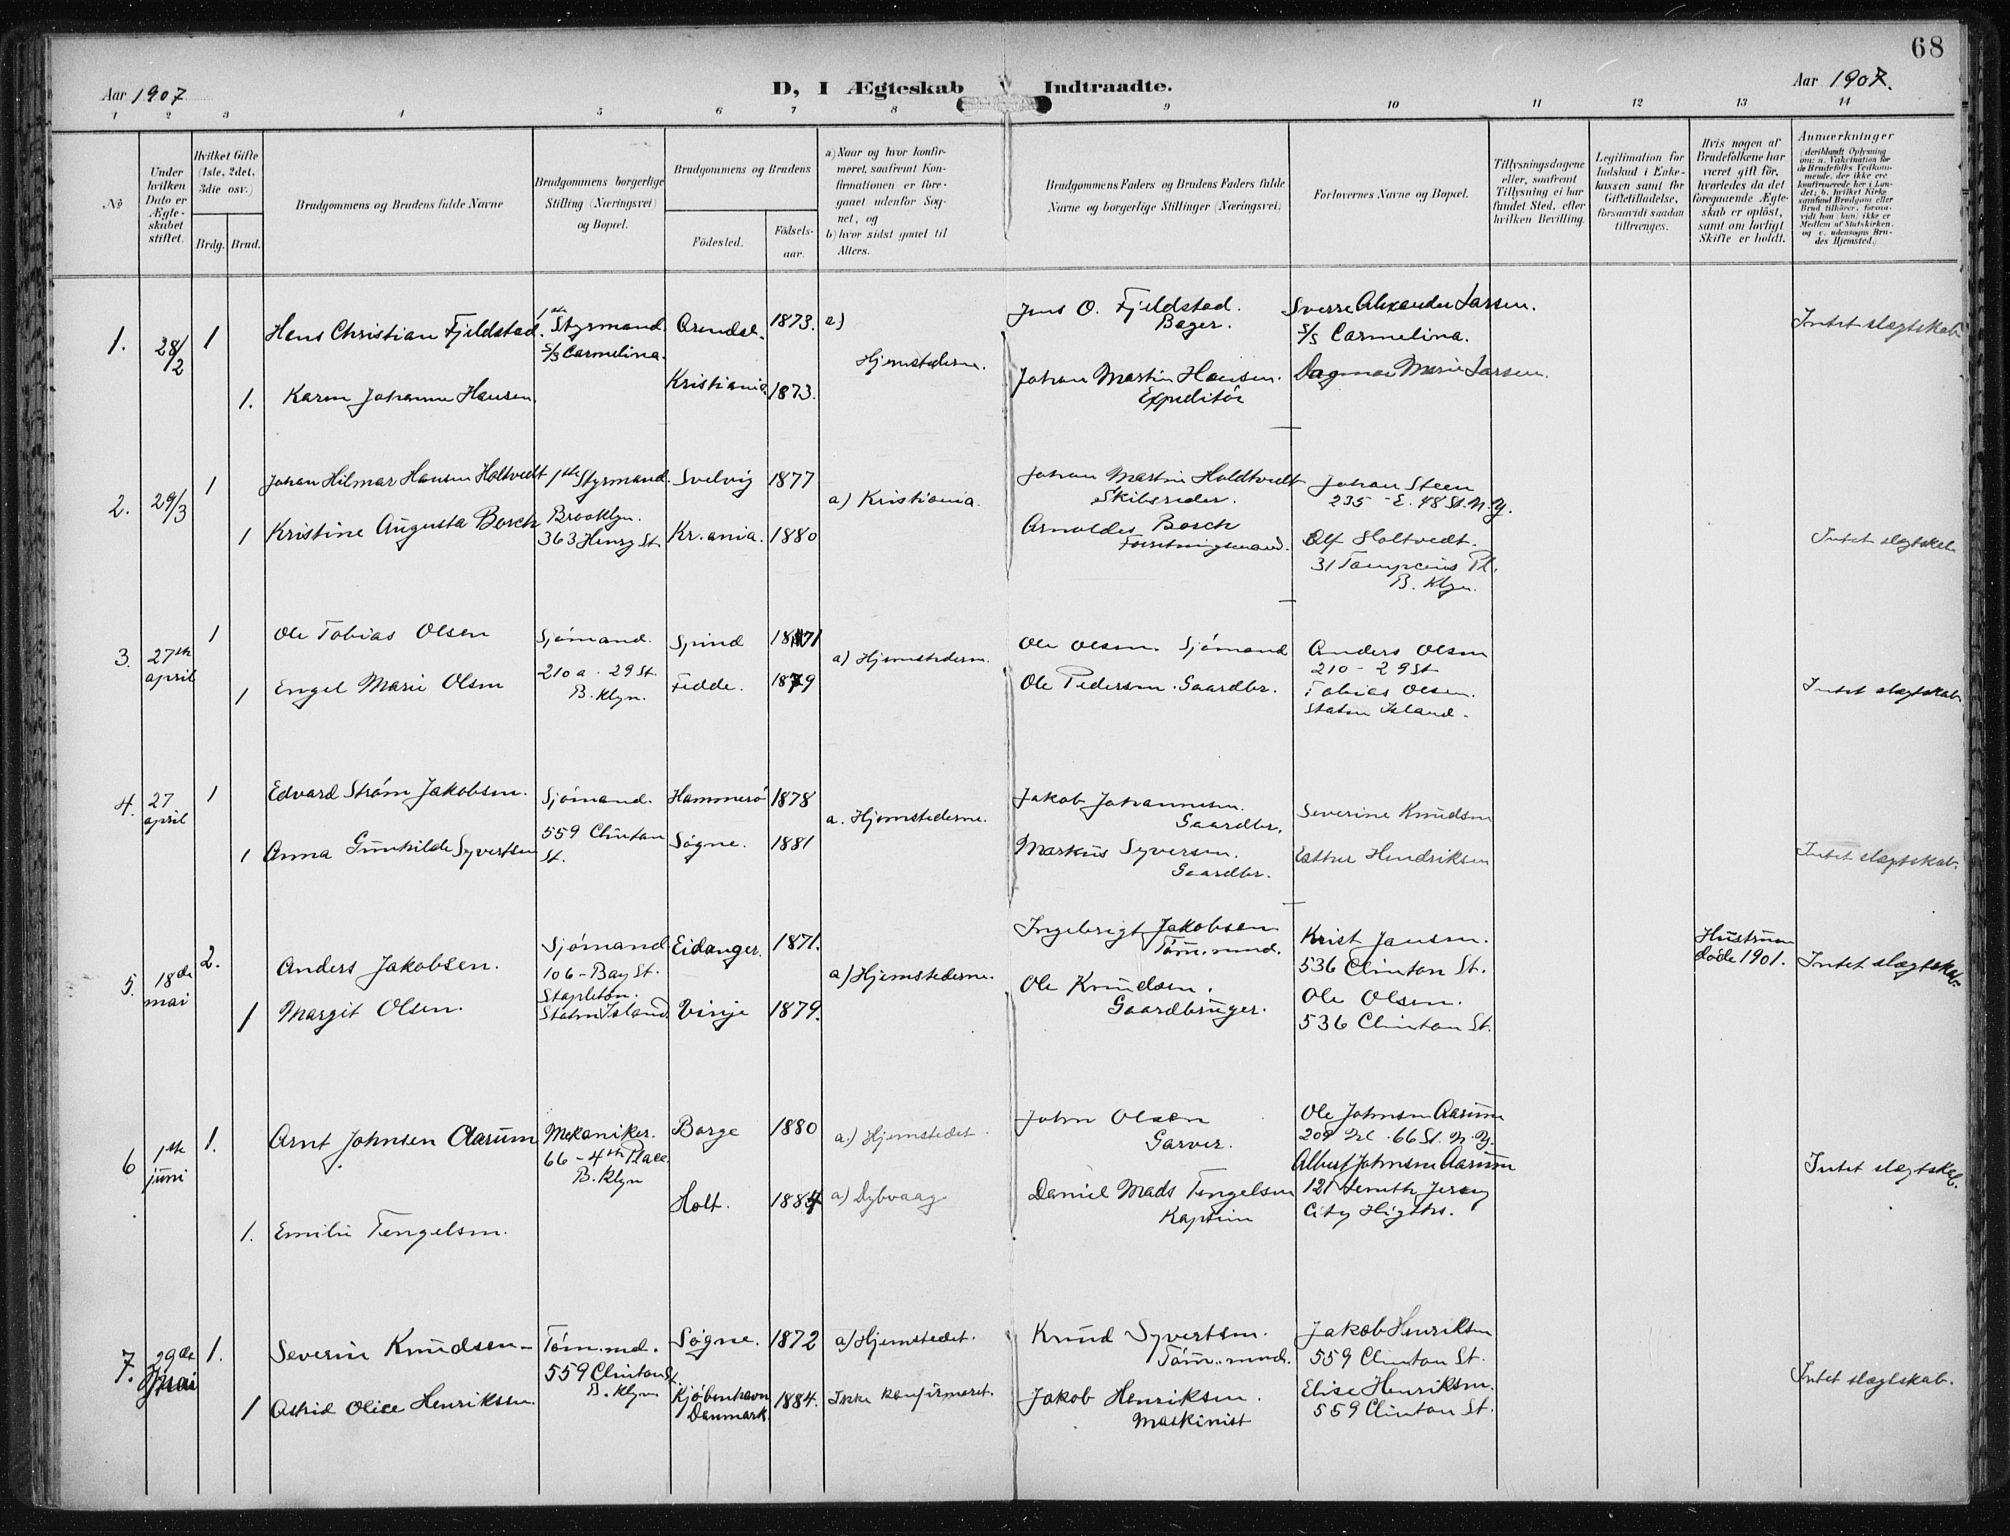 68
Aar 1907
D, I Ægteskab Indtraadte.
Aar 1907.
1 2 3 4 5 6 7 8 9 10 11 12 13 14
No
Under hvilken Dato er Ægteskabet stiftet.
Hvilket Gifte (1ste, 2det, 3die osv.)
Brdg. Brud.
Brudgommens og Brudens fulde Navne
Brudgommens borgerlige Stilling (Næringsvei) og Bopæl.
Brudgommens og Brudens
Fødested.
Fødselsaar.
a) Naar og hvor konfirmeret, saafremt Konfirmationen er foregaaet udenfor Sognet, og
b) hvor sidst gaaet til Alters.
Brudgommens Faders og Brudens Faders fulde Navne og borgerlige Stillinger (Næringsvei)
Forlovernes Navne og Bopæl.
Tillysningsdagene eller, saafremt Tillysning ei har fundet Sted, efter hvilken Bevilling.
Legitimation for Indskud i Enkekassen samt for Giftetilladelse, forsaavidt saadan tiltrænges.
Hvis nogen af Brudefolkene har været gift før, hvorledes da det foregaaende Ægteskab er opløst, samt om lovligt Skifte er holdt.
Anmærkninger
(deriblandt Oplysning om: a. Vakcination for de Brudefolks Vedkommende, der ikke ere konfirmerede her i Landet; b. hvilket Kirkesamfund Brudgom eller Brud tilhører, forsaavidt han (hun) ikke er Medlem af Statskirken, og c. udensogns Brudes Hjemsted.)
1. 28/2 1
Hans Christian Fjeldstad.
1ste Styrmand.
S/S Carmelina.
Arendal. 1873. a)
Hjemstederne.
Jens O. Fjeldstad.
Bager.
Sverre Alexander Larsen.
S/S Carmelina.
Intet slægtskab.
1. Karen Johanne Hansen.
Kristiania 1873.
Johan Martin Hansen.
Expeditør
Dagmar Marie Larsen.
2. 29/3 1
Johan Hilmar Hansen Holtvedt
1ste Styrmand.
Svelvig 1877
a) Kristiania.
Johan Martin Holdtvedt
Skibsreder.
Johan Steen
235 - E. 48 St. N.Y.
1 Kristine Augusta Borch
Brooklyn.
363 Henry St.
Kr.ania. 1880
Arnoldes Borch
Forretningsmand.
Alf Holtvedt.
31 Pl.
B. Klyn.
Intet slægtskab
3. 27th april 1
Ole Tobias Olsen
Sjømand.
210a - 29 St.
B. Klyn.
Spind 1871
a) Hjemstederne.
Ole Olsen. Sjømand
Anders Olsen
210 - 29 St
1 Engel Marie Olsen
Fedde. 1879
Ole Pedersen. Gaardbr.
Tobias Olsen.
Staten Island.
Intet slægtskab.
4. 27 april 1
Edvard Strøm Jakobsen.
Sjømand.
559 Clinton St.
Hammerø 1878
a. Hjemstederne.
Jakob Johannesen.
Gaardbr.
Severine Knudsen
1 Anna Gunhilde Syvertsen
Søgne. 1881
Markus Syversen.
Gaardbr.
Esther Hendriksen
Intet slægtskab.
5. 18de mai 2.
Anders Jakobsen.
Sjømand
106 - Bay St.
Stapleton.
Staten Island.
Eidanger. 1871.
a) Hjemstederne.
Ingebrigt Jakobsen
Tøm.mnd.
Krist Jansen.
536 Clinton St.
Hustruen
døde 1901.
Intet slægtskab.
1 Margit Olsen.
Vinje 1879.
Ole Knudsen.
Gaardbruger.
Ole Olsen.
536 Clinton St.
6 1ste juni 1.
Arnt Johnsen Aarum
Mekaniker.
66 - 4th Place.
B. Klyn
Borge 1880
a.) Hjemstedet.
John Olsen
Garver.
Ole Johnsen Aarum
209 66 St. N.Y.
Albert Johnsen Aarum
121 Jersey
City Hights.
Intet slægtskab.
1. Emilie Tengelsen.
Holt. 1884
a) Dybvaag
Daniel Mads Tengelsen
Kaptein
7. 29de mai 1.
Severin Knudsen
Tøm.md.
559 Clinton St.
B. Klyn
Søgne. 1872
a) Hjemstedet.
Knud Syvertsen.
Tøm.mnd.
Jakob Henriksen
559 Clinton St.
Intet slægtskab.
1 Astrid Olice Henriksen.
Kjøbenhavn
Danmark. 1884.
Ikke konfirmeret.
Jakob Henriksen.
Maskinist
Elise Henriksen.
559 Clinton St.